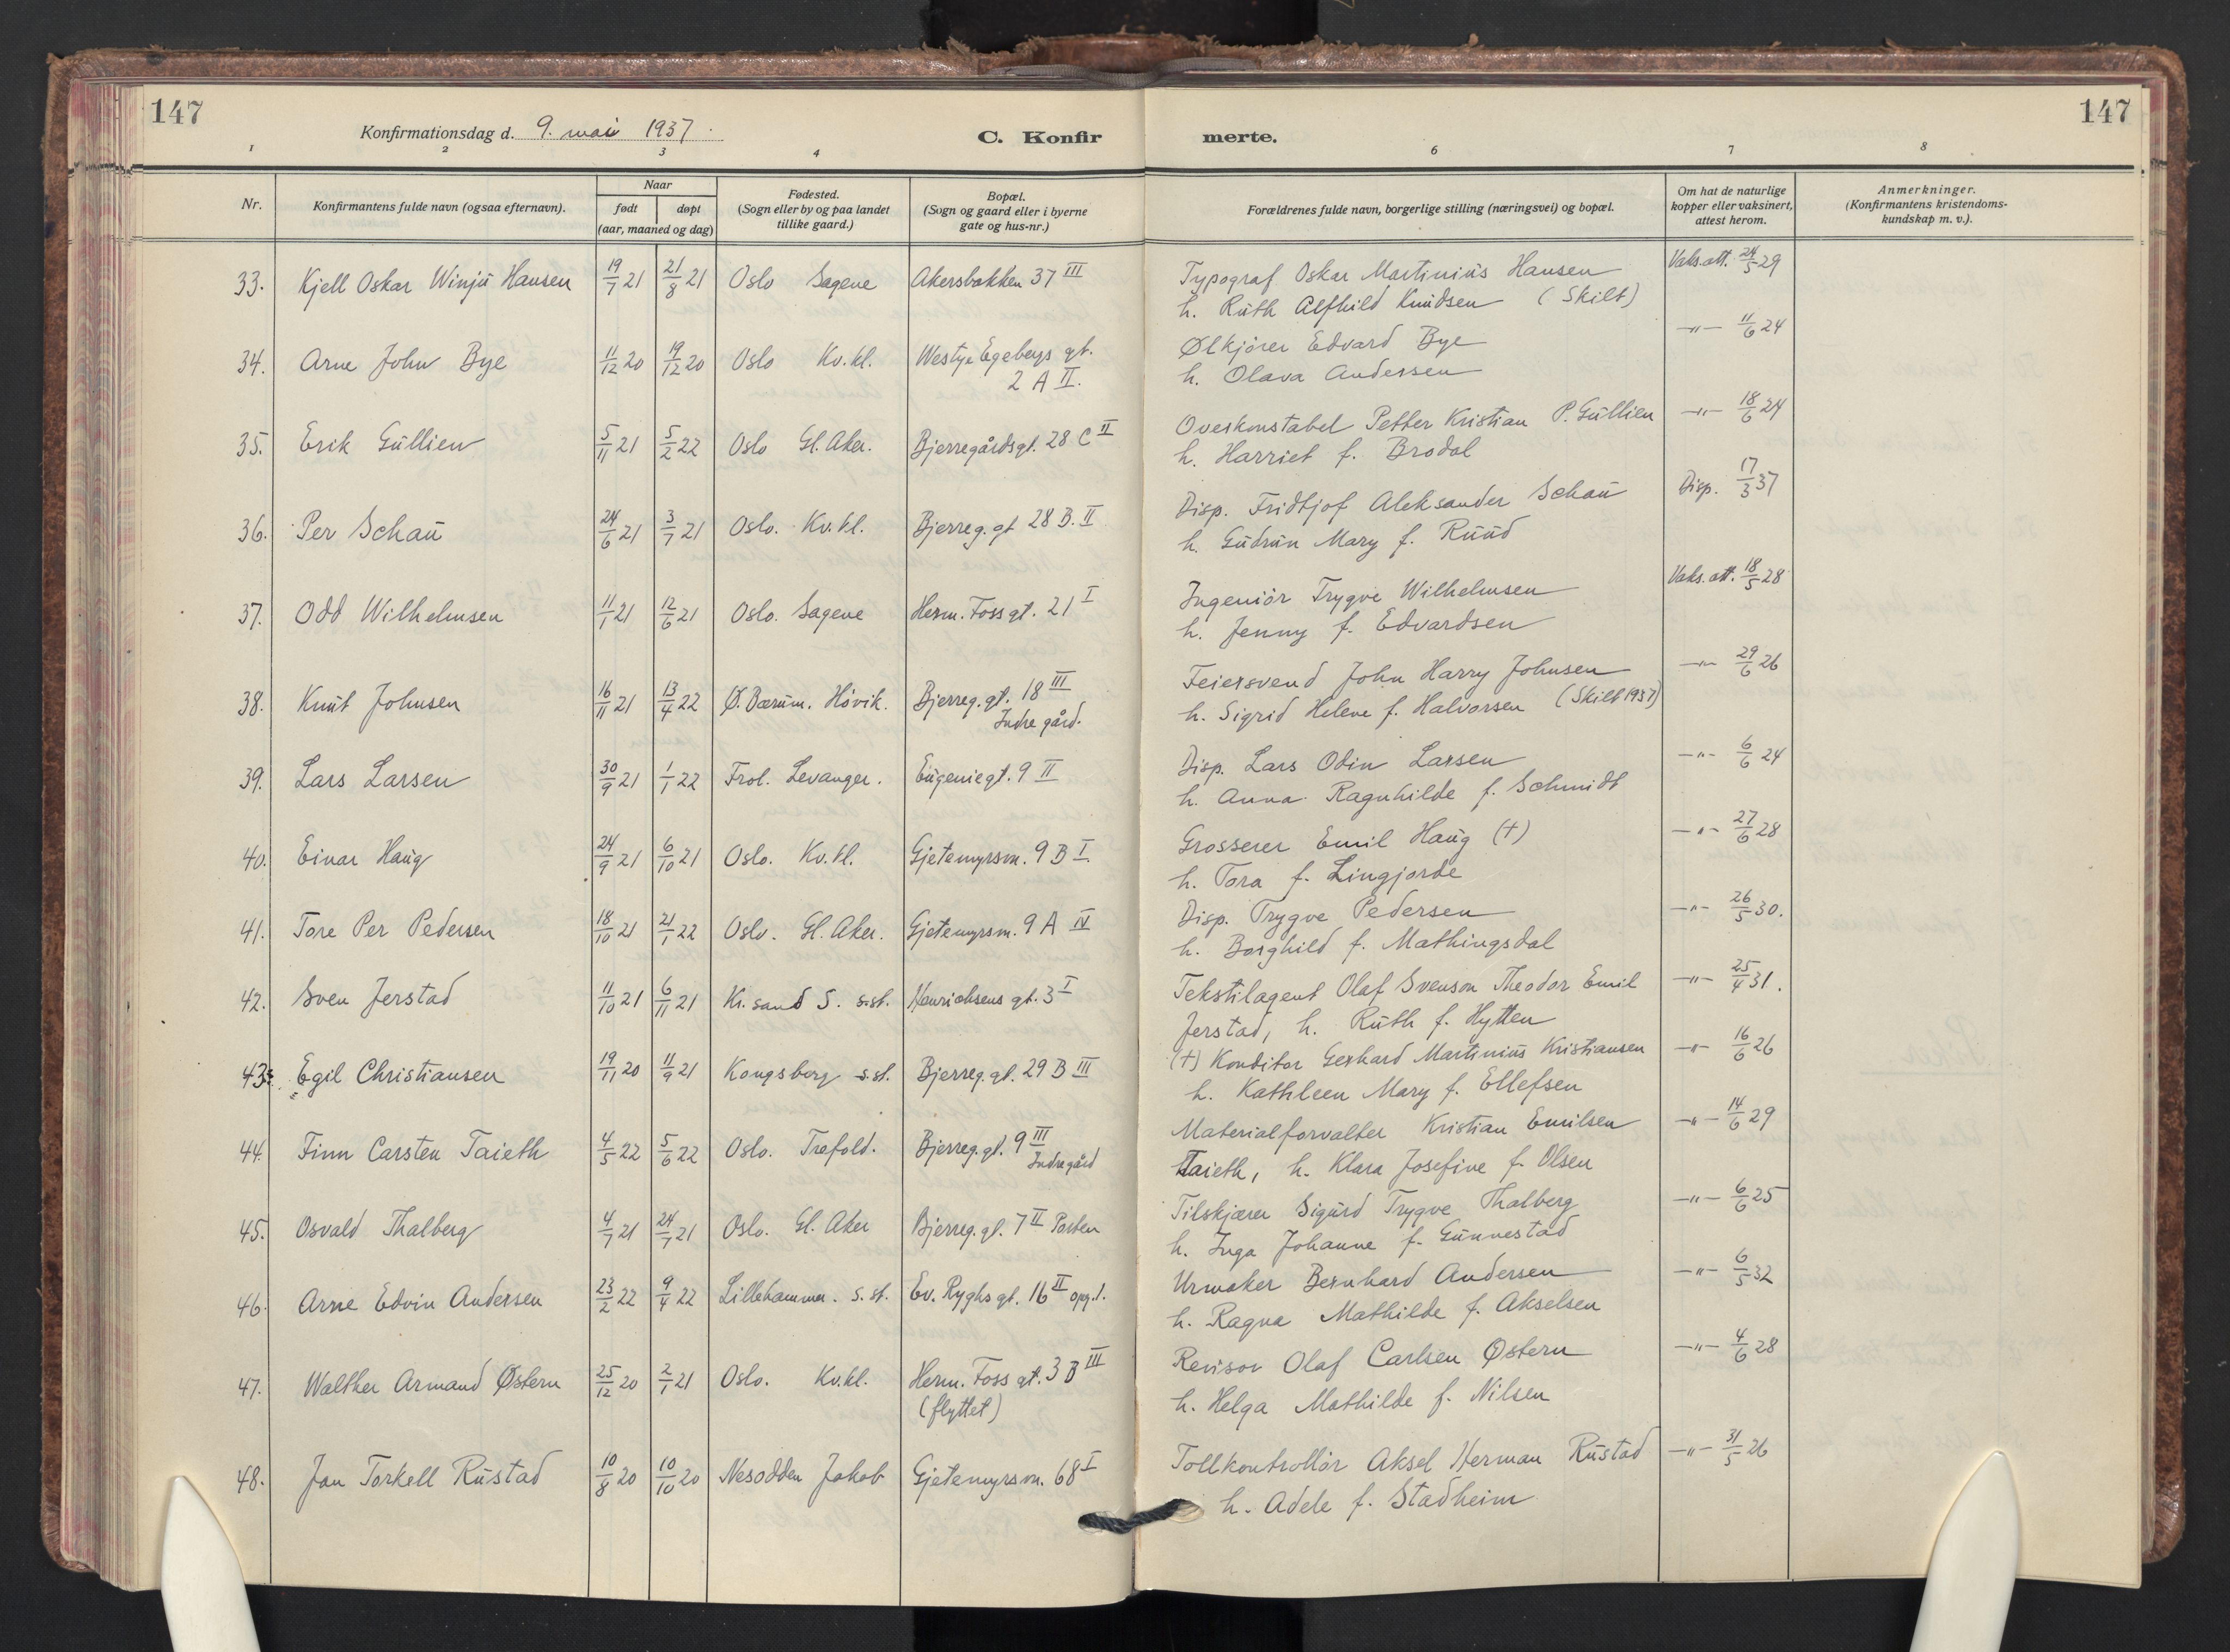 147
147
Konfirmationsdag d. 9. mai 1937.
C. Konfir
merte.
1 2 3 4 6 7 8
Nr.
Konfirmantens fulde navn (ogsaa efternavn).
Naar
født døpt
(aar, maaned og dag)
Fødested.
(Sogn eller by og paa landet
tillike gaard.)
Bopæl.
(Sogn og gaard eller i byerne
gate og hus-nr.)
Forældrenes fulde navn, borgerlige stilling (næringsvei) og bopæl.
Om hat de naturlige
kopper eller vaksinert,
attest herom.
Anmerkninger.
(Konfirmantens kristendoms-
kundskap m. v.).
33. Kjell Oskar Winju Hansen 19/7 21 21/8 21 Oslo Sagene Akersbakken 37 III
Typograf Oskar Martinius Hansen Vaks.att. 24/5 29
h. Ruth Alfhild Knudsen (Skilt)
34. Arne John Bye 11/12 20 19/12 20 Oslo Kv.kl. Westye Egebergs gt.
2 A II.
Ølkjører Edvard Bye —"— 11/6 24
h. Olava Andersen
35. Erik Gullien 5/11 21 5/2 22 Oslo Gl. Aker. Bjerregårdsgt. 28 C II
Overkonstabel Petter Kristian P. Gullien —"— 18/6 24
h. Harriet f. Brodal
36. Per Schau 24/6 21 3/7 21 Oslo. Kv.kl. Bjerreg.gt 28 B. II
Disp. Fridtjof Aleksander Schau Disp. 17/3 37
h. Gudrun Mary f. Ruud
37. Odd Wilhelmsen 11/1 21 12/6 21 Oslo. Sagene Herm. Foss gt. 21 I
Ingeniør Trygve Wilhelmsen Vaks. att. 18/5 28
h. Jenny f. Edvardsen
38. Knut Johnsen 16/11 21 13/4 22 Ø. Bærum. Høvik. Bjerreg.gt. 18 III
Indre gård.
Feiersvend John Harry Johnsen —"— 29/6 26
h. Sigrid Helene f. Halvorsen (Skilt 1937)
39. Lars Larsen 30/9 21 1/1 22 Frol. Levanger. Eugeniegt. 9 II
Disp. Lars Odin Larsen —"— 6/6 24
h. Anna Ragnhilde f. Schmidt
40. Einar Haug 24/9 21 6/10 21 Oslo. Kv.kl. Gjetemyrsv. 9 B I
Grosserer Emil Haug (†) —"— 27/6 28
h. Tora f. Lingjorde
41. Tore Per Pedersen 18/10 21 21/1 22 Oslo. Gl. Aker. Gjetemyrsv. 9 A IV
Disp. Trygve Pedersen —"— 26/5 30.
h. Borghild f. Mathingsdal
42. Sven Jerstad 11/10 21 6/11 21 Kr.sand S. s.st. Henrichsens gt. 3 I
Tekstilagent Olaf Svenson Theodor Emil —"— 25/4 31.
Jerstad, h. Ruth f. Hytten
43. Egil Christiansen 19/11 20 11/9 21 Kongsberg s.st. Bjerreg.gt. 29 B III
(†) Konditor Gerhard Martinius Kristiansen —"— 16/6 26
h. Kathleen Mary f. Ellefsen
44. Finn Carsten Taieth 4/5 22 5/6 22 Oslo. Trefold. Bjerreg.gt. 9 III
Indre gård
Materialforvalter Kristian Emilsen —"— 14/6 29
Taieth, h. Klara Josefine f. Olsen
45. Osvald Thalberg 4/7 21 24/7 21 Oslo. Gl. Aker Bjerreg.gt. 7 II Porten
Tilskjærer Sigurd Trygve Thalberg —"— 6/6 25
h. Inga Johanne f. Gunnestad
46. Arne Edvin Andersen 23/2 22 9/4 22 Lillehammer. s.st. Ev. Ryghs gt. 16 II opg.1.
Urmaker Bernhard Andersen —"— 6/5 32
h. Ragna Mathilde f. Akselsen
47. Walther Armand Østern 25/12 20 2/1 21 Oslo. Kv.kl. Herm. Foss gt. 3 B III
(flyttet)
Revisor Olaf Carlsen Østern —"— 4/6 28
h. Helga Mathilde f. Nilsen
48. Jan Torkell Rustad 10/8 20 10/10 20 Nesodden Jakob Gjetemyrsv. 68 I
Tollkontrollør Aksel Herman Rustad —"— 31/5 26
h. Adele f. Stadheim